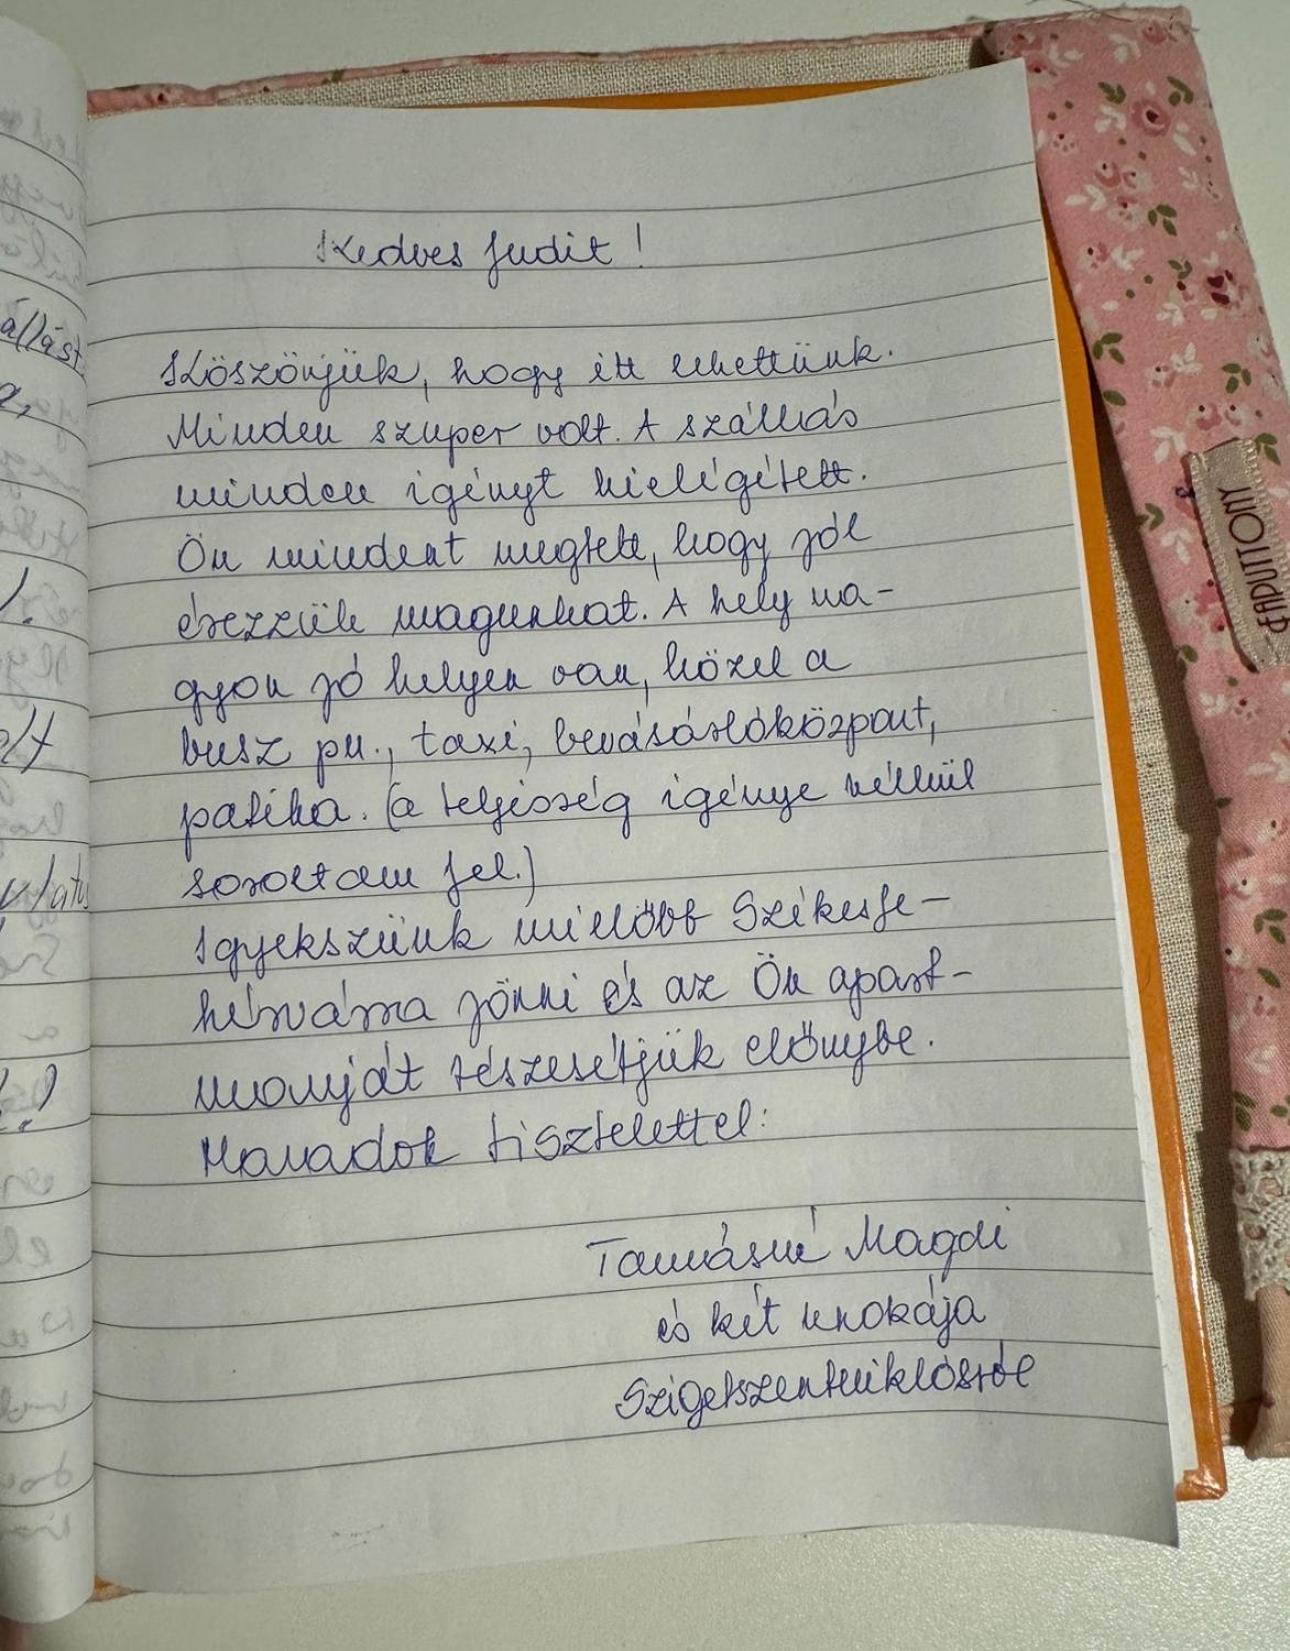 Kedves Judit!
Köszönjük, hogy itt lehettünk.
Minden szuper volt. A szállás
minden igényt kielégített.
Ön mindent megtett, hogy jól
érezzük magunkat. A hely na-
gyon jó helyen van, közel a
busz pu., taxi, bevásárlóközpont,
patika. (a teljesség igénye nélkül
soroltam fel.)
Igyekszünk mielőbb Székesfe-
hérvárra jönni és az Ön apart-
manját részesítjük előnybe.
Maradok tisztelettel:
Tamásné Magdi
és két unokája
Szigetszentmiklósról
FAPUTTONY